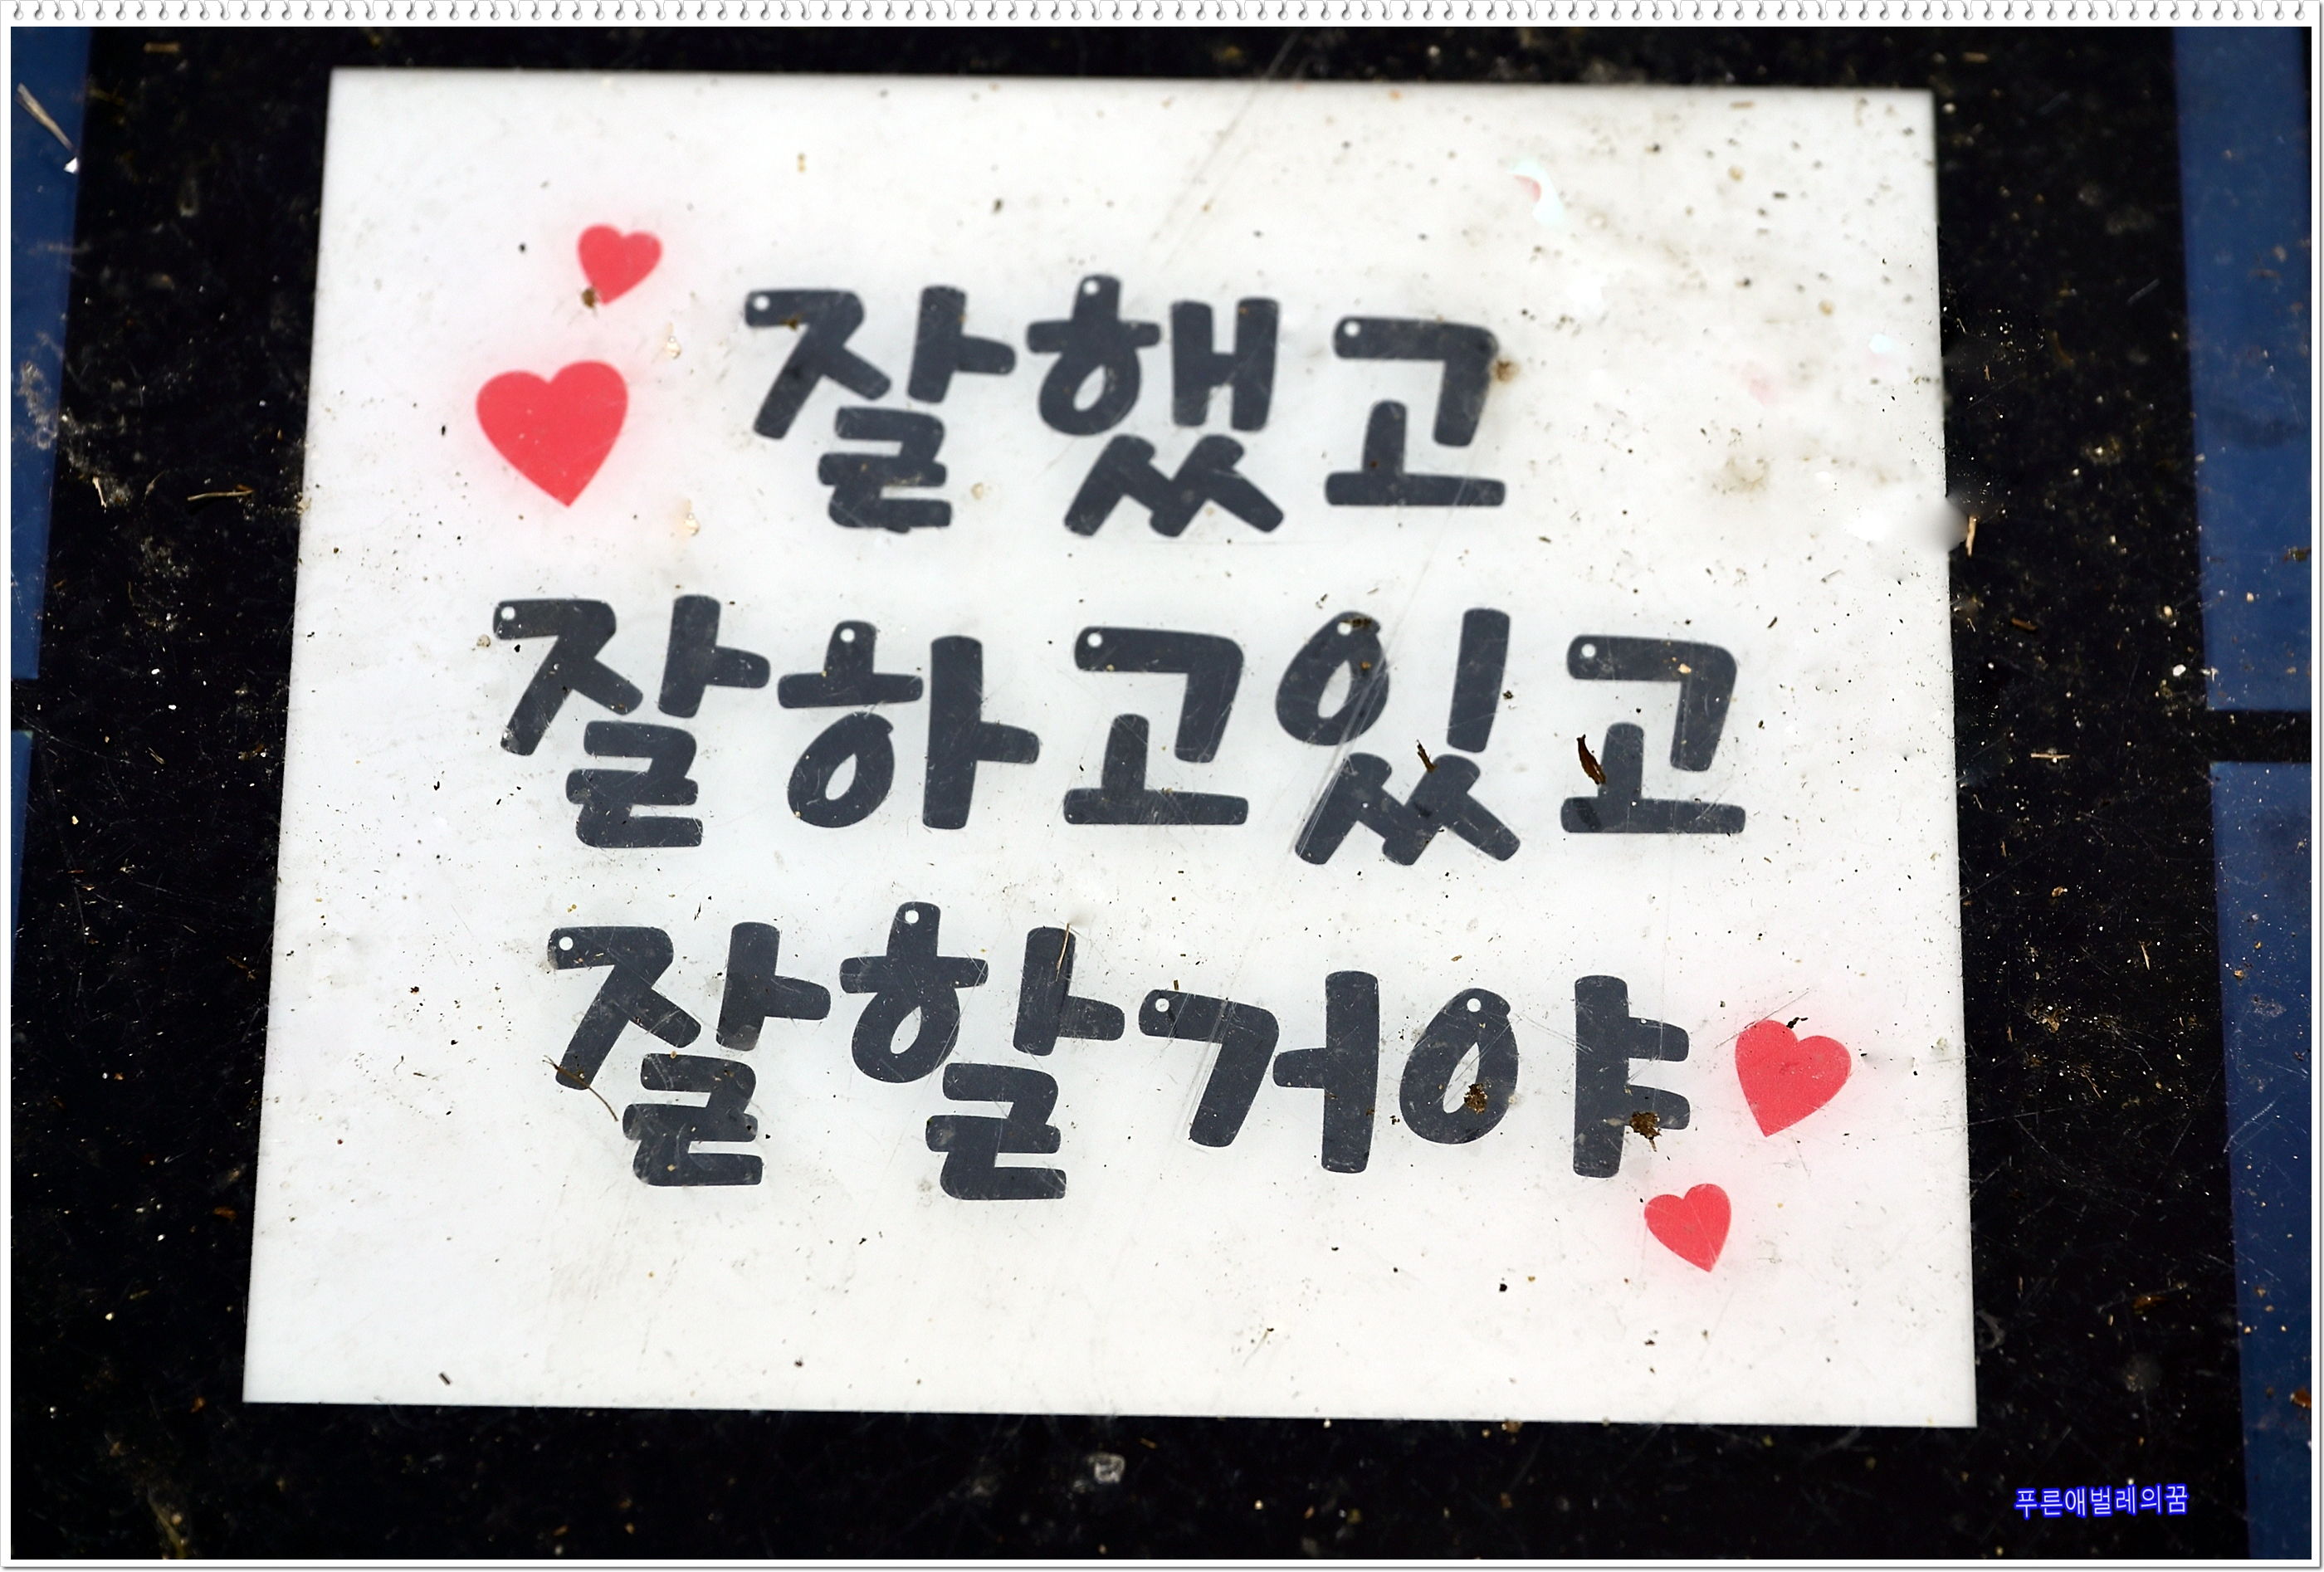 잘했고
잘하고있고
잘할거야
푸른애벌레의꿈